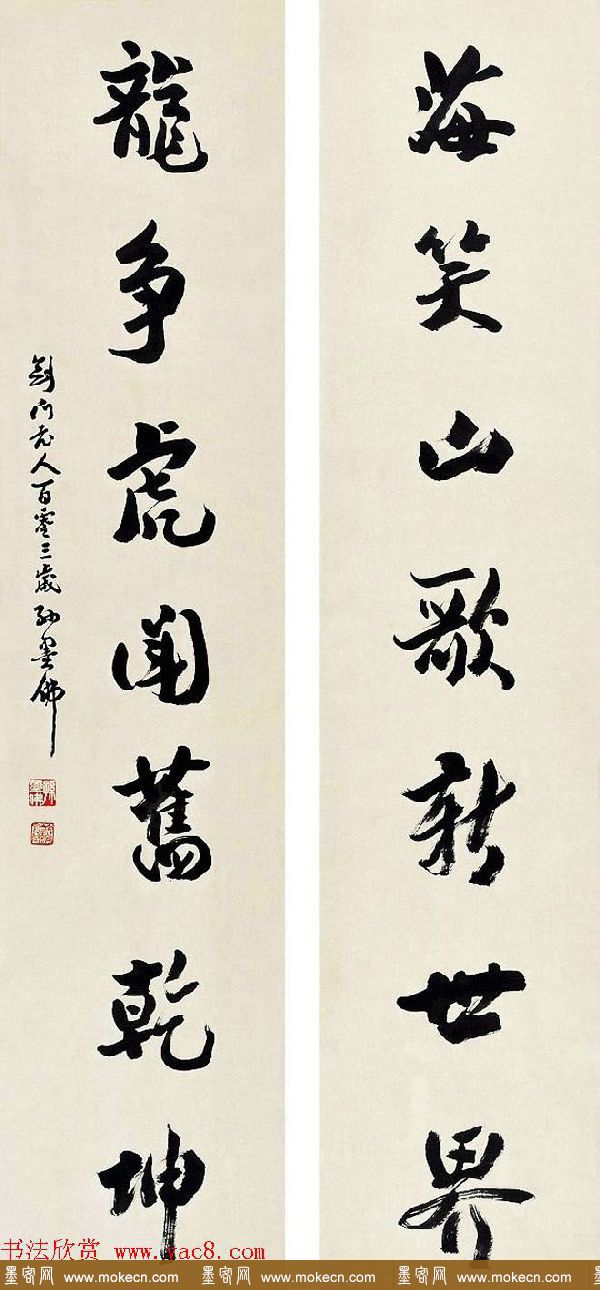 海笑山歌新世界
龍争虎闘舊乾坤
剑门老人百零三歲孙墨佛
书法欣赏 www.yac8.com
墨客网 www.mokecn.com 墨客网 www.mokecn.com 墨客网 www.mokecn.com